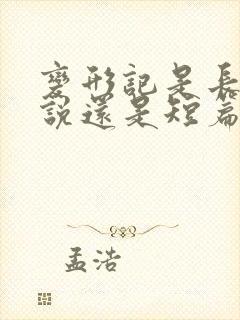 變形記是長
說還是短篇
孟浩